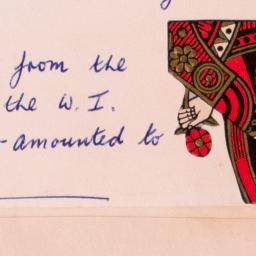 from the
the W. I.
-amounted to